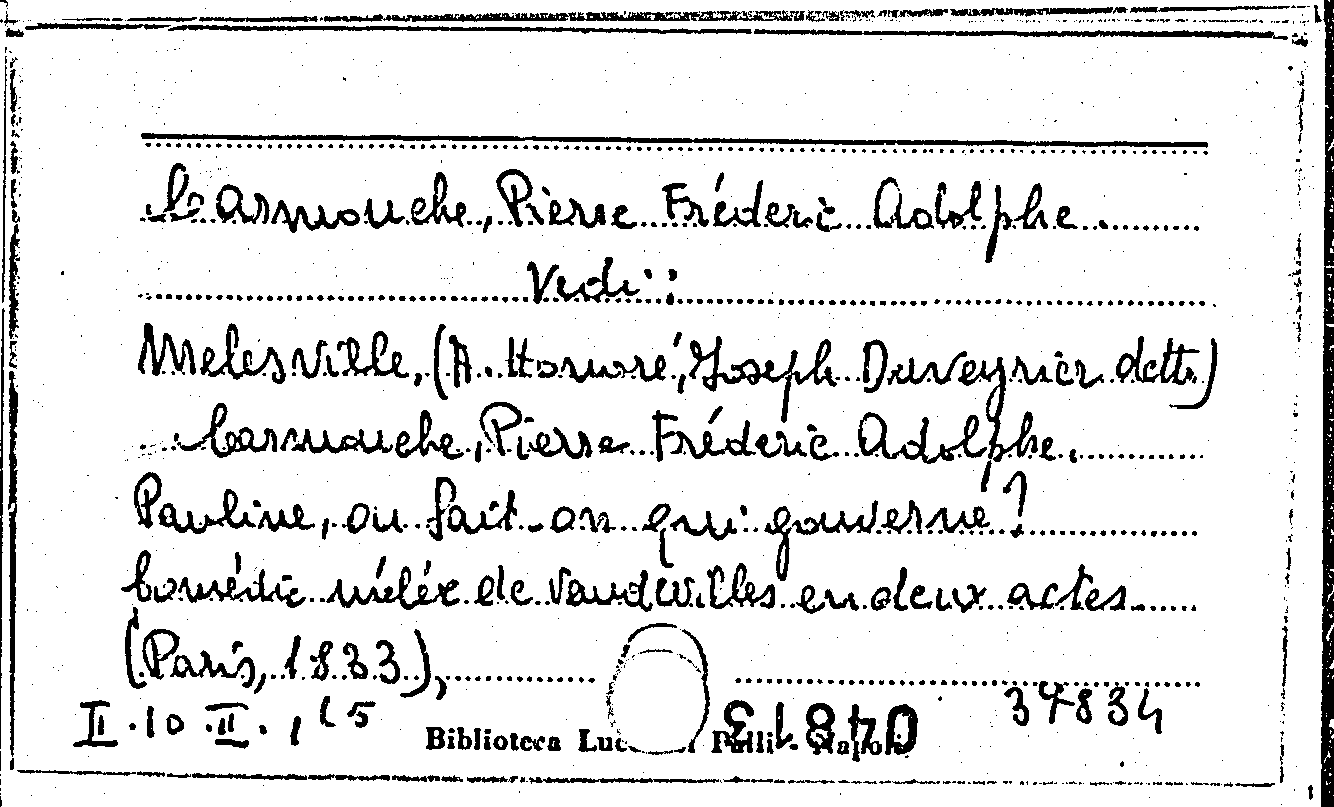 Carmouche, Pierre Fréderic Adolphe.
Vedi:
Melesville, (A. Honoré, Joseph Duveyrier detto)
Carmouche, Pierre Fréderic Adolphe.
Pauline, ou sait-on qui gouverne?
Comédie mêlée de vaudevilles en deux actes
(Paris, 1833),
II.10.II.,(5
37834
04813
Biblioteca Palli - Napoli